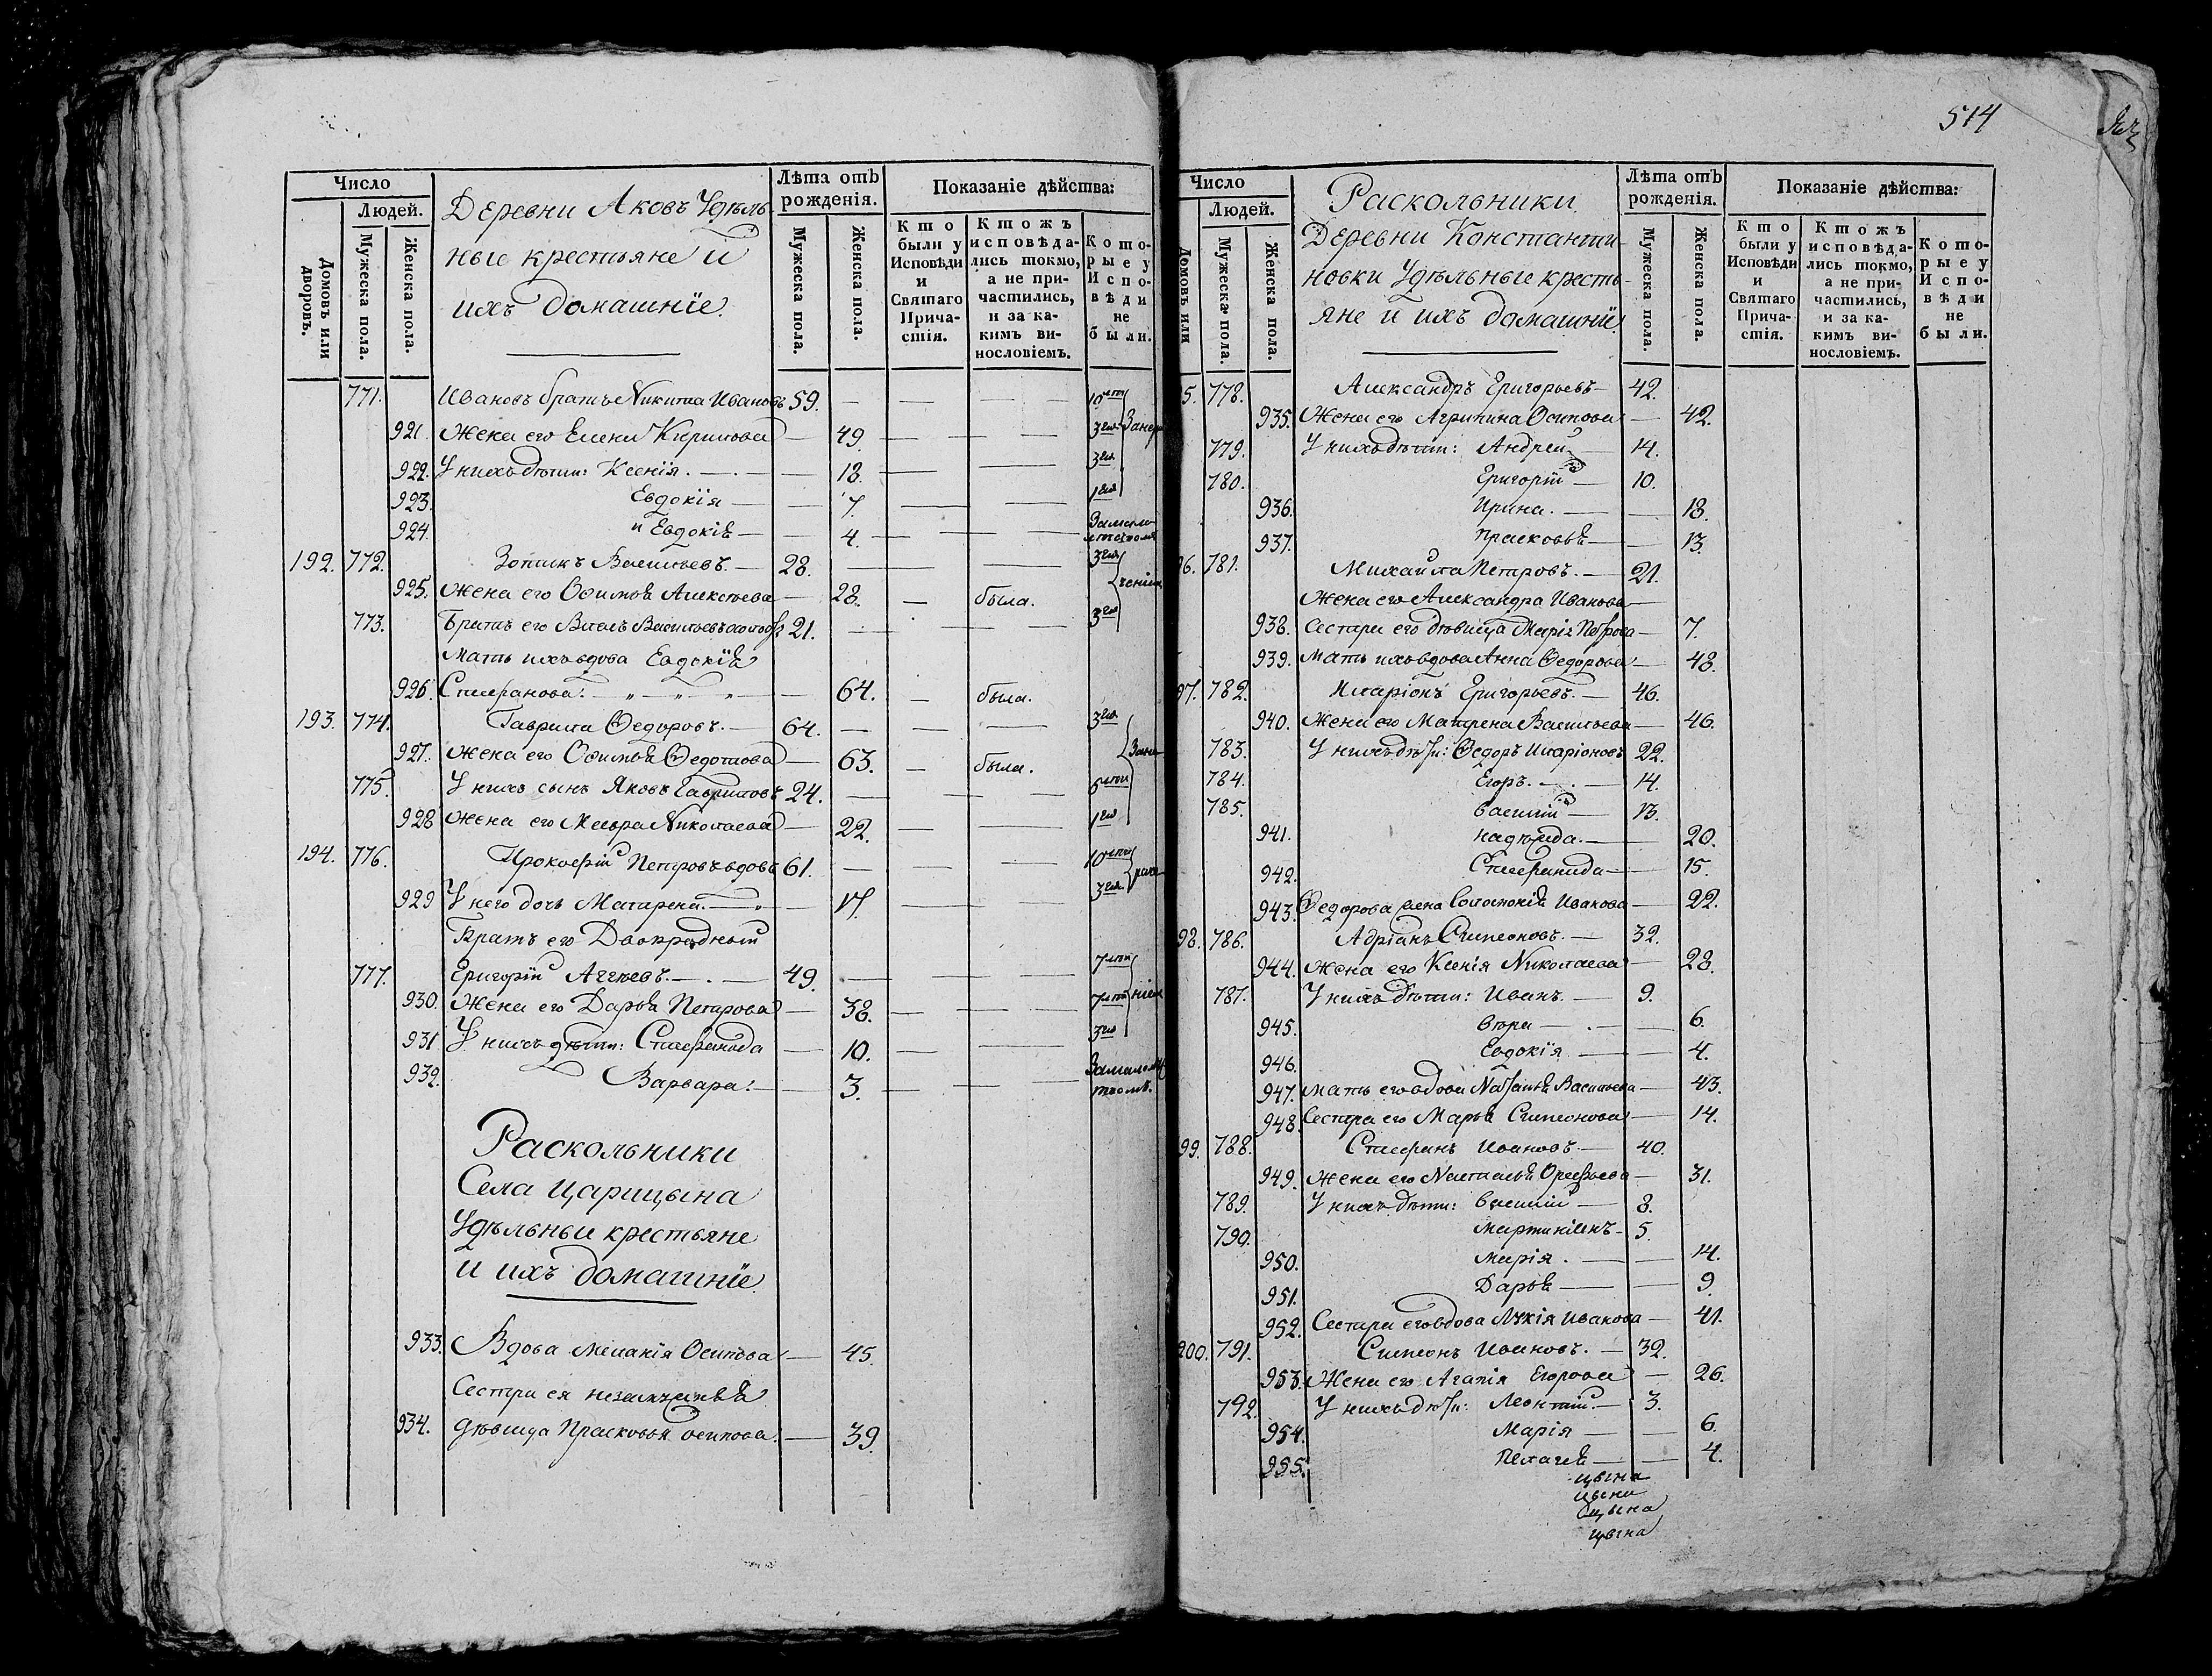 514
Число
Людей.
Домовъ или дворовъ.
Мужеска пола.
Женска пола.
Деревни Аковъ Удѣль-
ные крестьяне и
ихъ домашніе.
Лѣта отъ рожденія.
Мужеска пола.
Женска пола.
Показаніе дѣйства:
Кто были у Исповѣди и Святаго Причастія.
Ктожъ исповѣдались токмо, а не причастились, и за какимъ винословіемъ.
Которые у Исповѣди не были.
771. Ивановъ братъ Никита Ивановъ 59. — — — 10
921. Жена его Елена Кирилова — 49. — — 3
922. У нихъ дѣти: Ксенія. — 13. — — 3
923. Евдокія — 7. — — 1
924. и Евдокія — 4. — —
192. 772. Зотикъ Васильевъ. — 28. — — 3
925. Жена его Офимья Алексѣева — 28. — была.
773. Братъ его Василій Васильевъ холостъ 21. — — 3
Мать ихъ вдова Евдокія
926. Стефанова. — 64. — была.
193. 774. Гаврила Федоровъ. — 64. — — 3
927. Жена его Офимья Федотова — 63. — была.
775. У нихъ сынъ Яковъ Гавриловъ 24. — —
928 Жена его Мавра Николаева — 22. — — 1
194. 776. Прокофій Петровъ вдовъ 61. — — 10
929 У него дочь Матрена. — 17. — — 3
Братъ его Двоюродный
777. Григорій Аггѣевъ. — 49. — — 7
930. Жена его Дарья Петрова — 38. — — 7
931 У нихъ дѣти: Стефанида — 10. — — 3
932. Варвара. — 3. — —
Раскольники
Села Царицына
Удѣльныи крестьяне
и ихъ домашніе.
933. Вдова Меланія Осипова — 45.
Сестра ея незаконная
934. дѣвица Прасковья Осипова. — 39.
Число
Людей.
Домовъ или
Мужеска пола.
Женска пола.
Раскольники.
Деревни Константи-
новки Удѣльные кресть-
яне и ихъ домашніе.
Лѣта отъ рожденія.
Мужеска пола.
Женска пола.
Показаніе дѣйства:
Кто были у Исповѣди и Святаго Причастія.
Ктожъ исповѣдались токмо, а не причастились, и за какимъ винословіемъ.
Которые у Исповѣди не были.
5. 778. Александръ Григорьевъ — 42.
935. Жена его Агрипина Осипова — 42.
779. У нихъ дѣти: Андрей — 14.
780. Григорій — 10.
936. Ирина. — 18.
937. Прасковья — 13.
96. 781. Михайла Петровъ. — 21.
Жена его Александра Иванова —
938. Сестра его дѣвица Марія Петрова — 7.
939. Мать ихъ вдова Анна Федорова — 48.
97. 782. Иларіонъ Григорьевъ. — 46.
940. Жена его Матрена Васильева — 46.
783. У нихъ дѣти: Федоръ Иларіоновъ 22.
784. Егоръ. — 14.
785. Василій — 13.
941. Надѣжда. — 20.
942. Стефанида — 15.
943. Федорова жена Соломонія Иванова — 22.
98. 786. Адріанъ Симеоновъ. — 32.
944. Жена его Ксенія Николаева — 28.
787. У нихъ дѣти: Иванъ. — 9.
945. — 6.
946. Евдокія — 4.
947. Мать его вдова Наталья Васильева — 43.
948. Сестра его Марья Симеонова — 14.
99. 788. Стефанъ Ивановъ. — 40.
949. Жена его Наталья Орефьева — 31.
789. У нихъ дѣти: Василій — 8.
790. Мартиніанъ — 5.
950. Марія. — 14.
951. Дарья — 9.
952. Сестра его вдова Лукія Иванова — 41.
200. 791. Симеонъ Ивановъ. — 32.
953. Жена его Агапія Егорова — 26.
792. У нихъ дѣти: Леонтій. — 3.
954. Марія — 6.
955. Пелагея — 4.